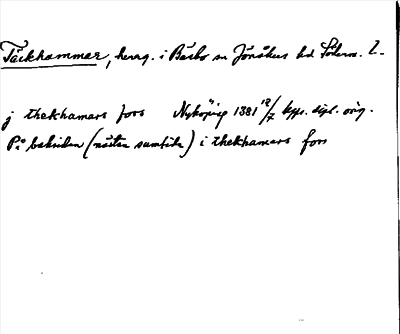 Täckhammar, herrg. i Bärbo sn Jönåkers hd Söderm. l.
j thekhamars fors Nyköping 1381 12/7 kps. dipl. orig.
På baksidan (nästan samtida) i thekhamars fors